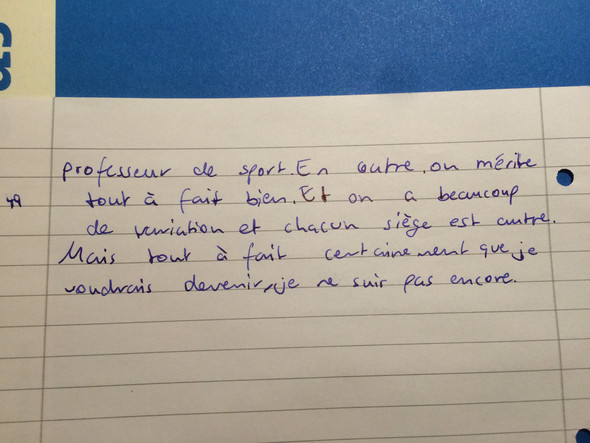 professeur de sport. En outre, on mérite
49 tout à fait bien. Et on a beaucoup
de variation et chacun siège est autre.
Mais tout à fait certainement que je
voudrais devenir, je ne suir pas encore.